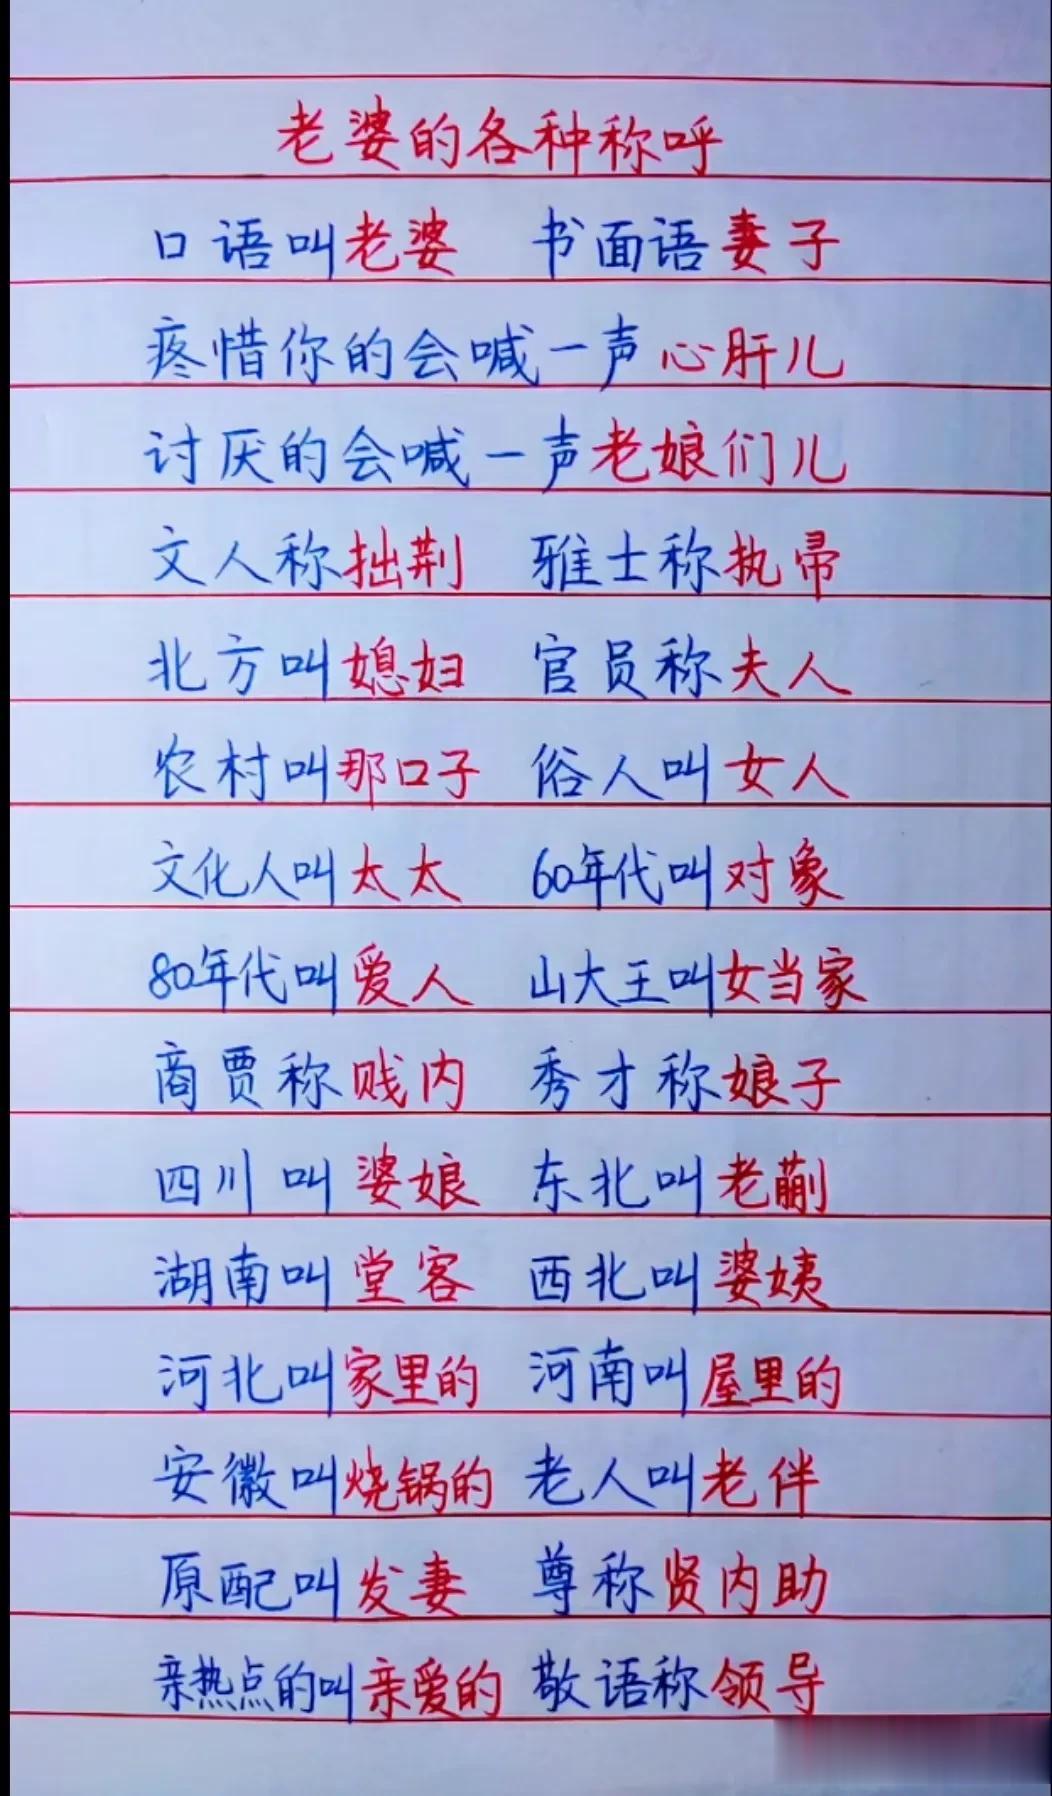 老婆的各种称呼
口语叫老婆 书面语妻子
疼惜你的会喊一声心肝儿
讨厌的会喊一声老娘们儿
文人称拙荆 雅士称执帚
北方叫媳妇 官员称夫人
农村叫那口子 俗人叫女人
文化人叫太太 60年代叫对象
80年代叫爱人 山大王叫女当家
商贾称贱内 秀才称娘子
四川叫婆娘 东北叫老蒯
湖南叫堂客 西北叫婆姨
河北叫家里的 河南叫屋里的
安徽叫烧锅的 老人叫老伴
原配叫发妻 尊称贤内助
亲热点的叫亲爱的 敬语称领导